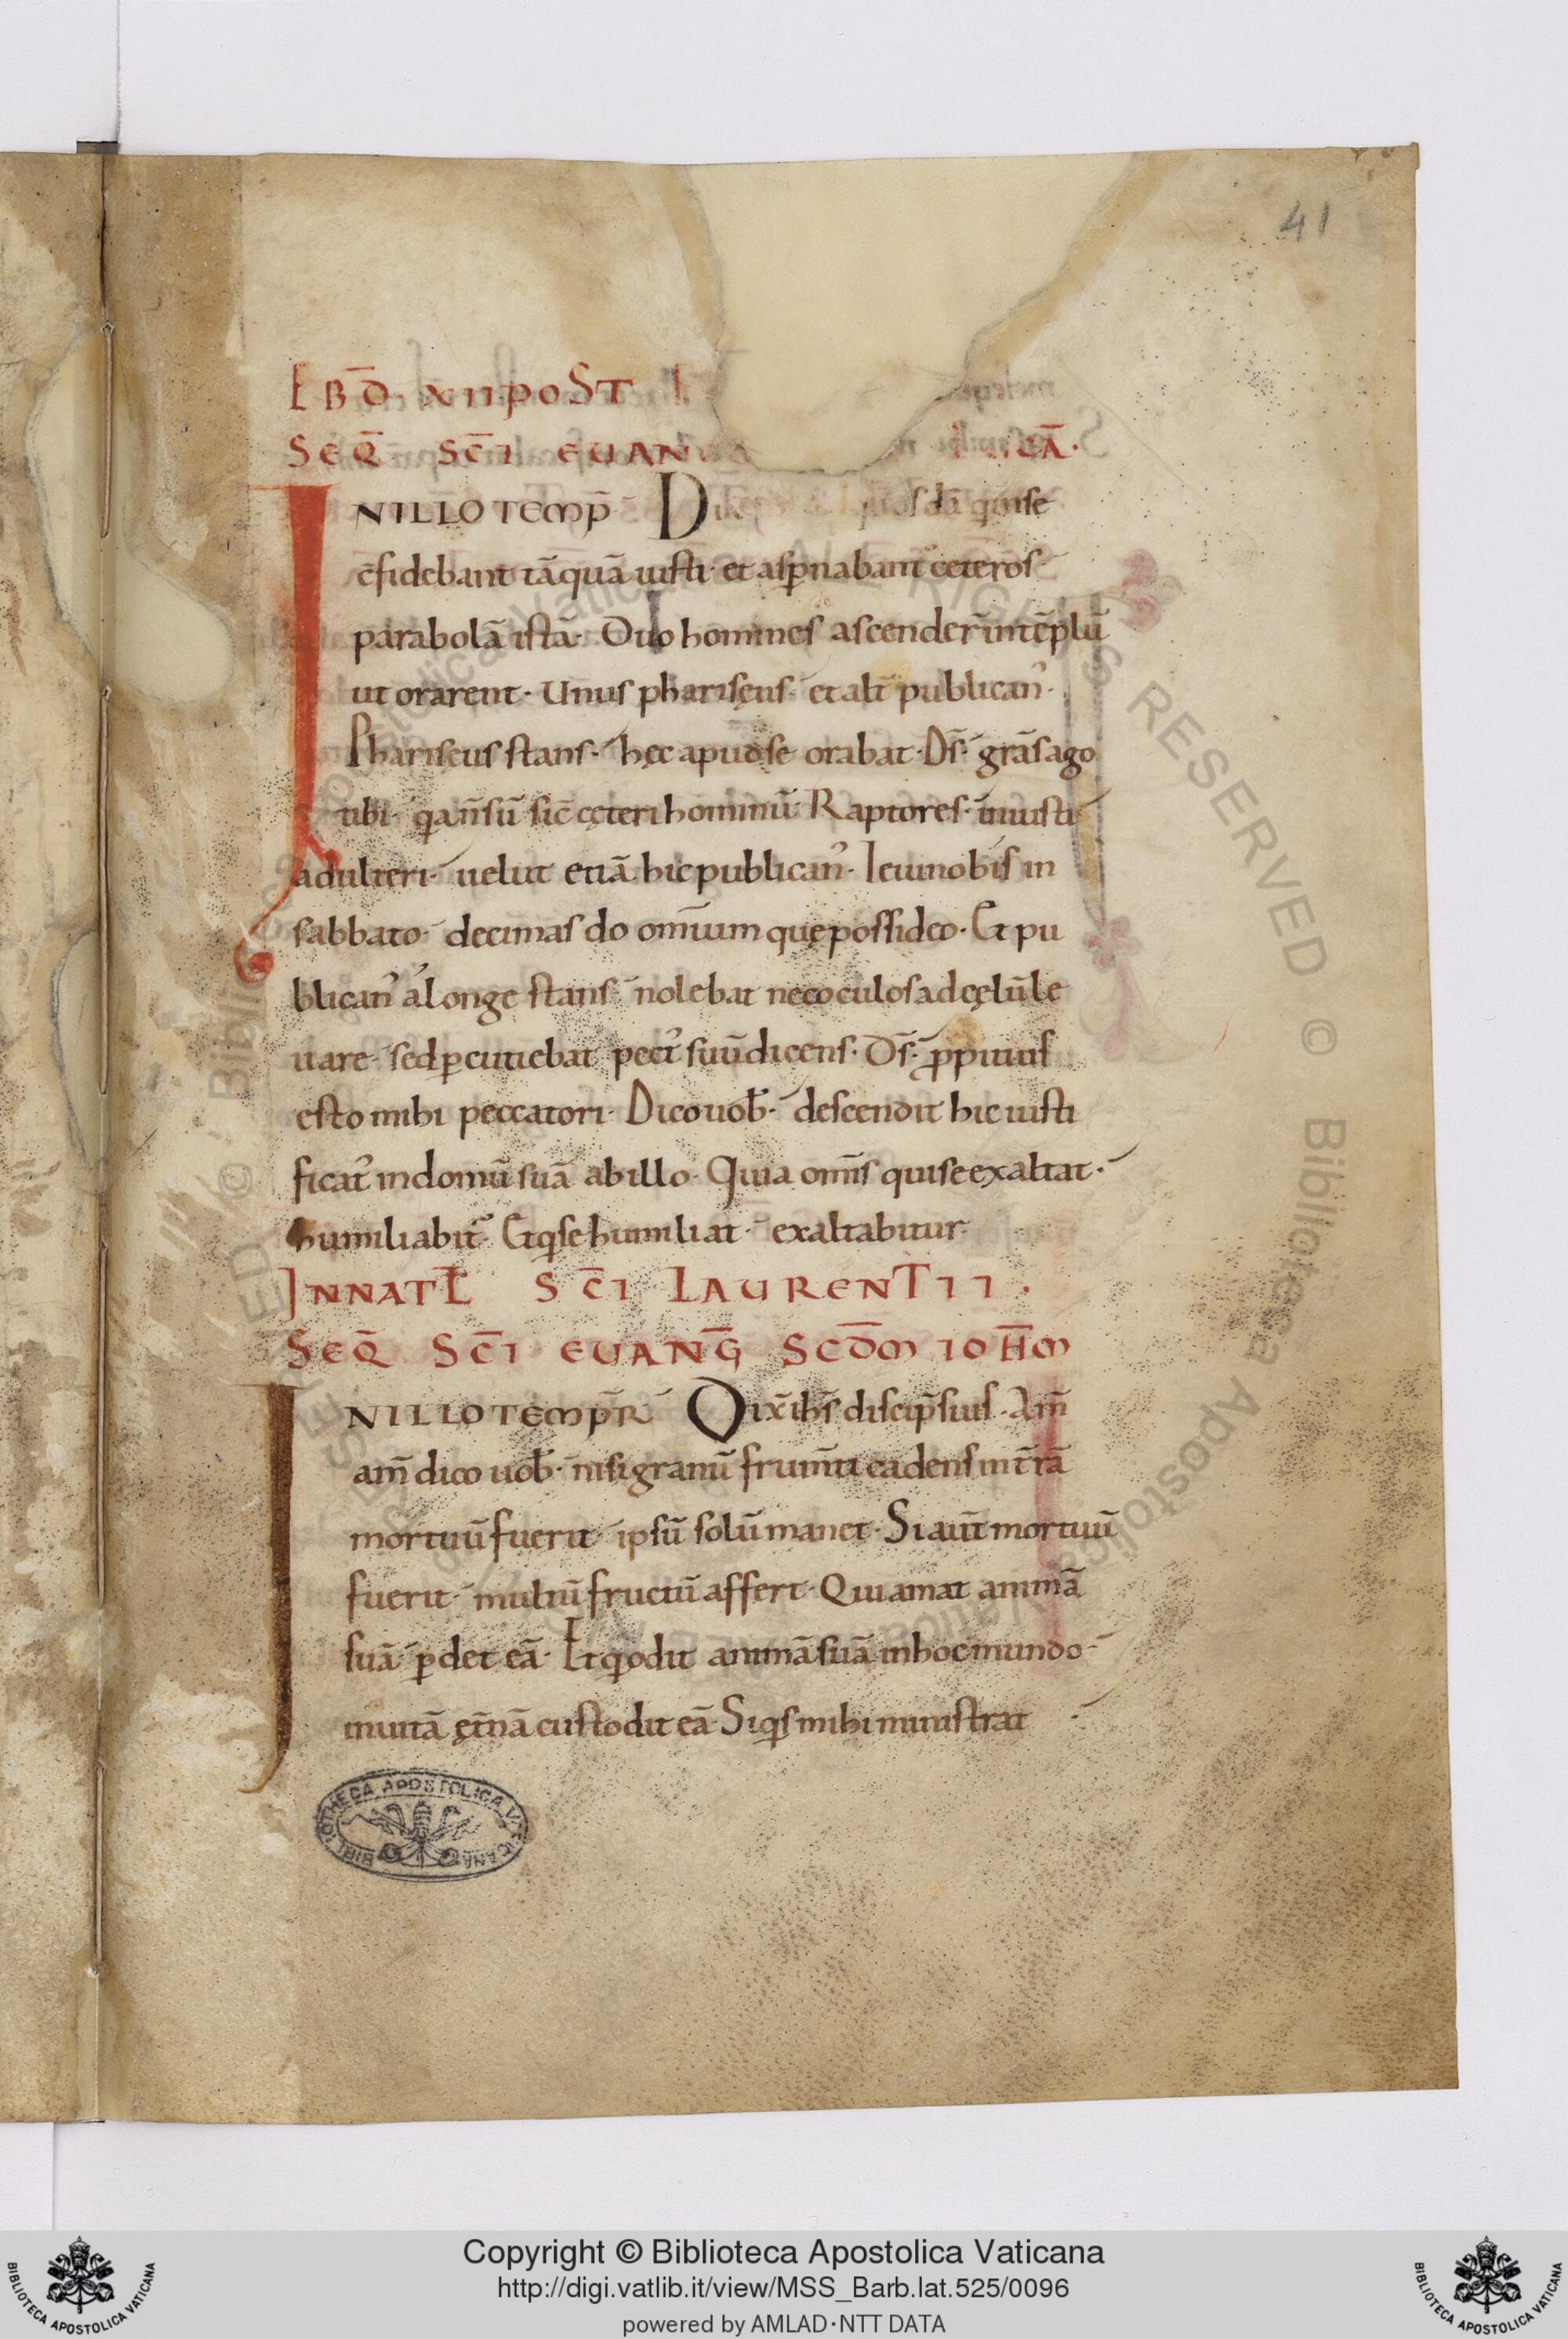 41
EBD̄. XII POST
SEQ̄ SC̄I EUANG CĀ.
INILLO TEMP̄ D quosdā quise
c̄fidebant tāquā iusti· et asp̄nabant ceteros·
parabolā istā· Duo homines ascender̄ intēplū
ut orarent· Unus pharisęus· et alt̄ publican᾽·
Phariseus stans· hęc apud se orabat· Ds̄· grās ago
tibi· q̣a n̄ sū sic̄ cęteri hominū· Raptores· iniusti
adulteri· uelut etiā hic publican᾽· Ieiuno bis in
sabbato· decimas do om̄ium quę possideo· Et pu
blican᾽ a longe stans· nolebat nec oculos ad cęlū le
uare· sed ꝑcutiebat pect᾽ suū dicens· Ds̄· ꝓpitius
esto mihi peccatori· Dico uob̄· descendit hic iusti
ficat᾽ in domū suā ab illo· Quia om̄is qui se exaltat·
humiliabit᾽· Et q̣ se humiliat· exaltabitur·
IN NATL̄ SC̄I LAURENTII·
SEQ̄ SC̄I EUANḠ SCD̄M IOH̄M
INILLO TEMPR̄ Dix̄ ih̄s discip̄ suis· Am̄
am̄ dico uob̄· nisi granū frum̄ti cadens in t̄rā
mortuū fuerit· ipsū solū manet· Si aūt mortuū
fuerit· multū fructū affert· Qui amat animā
suā· ꝑdet eā· Et q̣ odit animā suā in hoc mundo·
in uitā ęt̄nā custodit eā· Siq̣s mihi ministrat
BIBLIOTHECA APOSTOLICA VATICANA
Copyright © Biblioteca Apostolica Vaticana
http://digi.vatlib.it/view/MSS_Barb.lat.525/0096
powered by AMLAD·NTT DATA
BIBLIOTECA APOSTOLICA VATICANA
BIBLIOTECA APOSTOLICA VATICANA